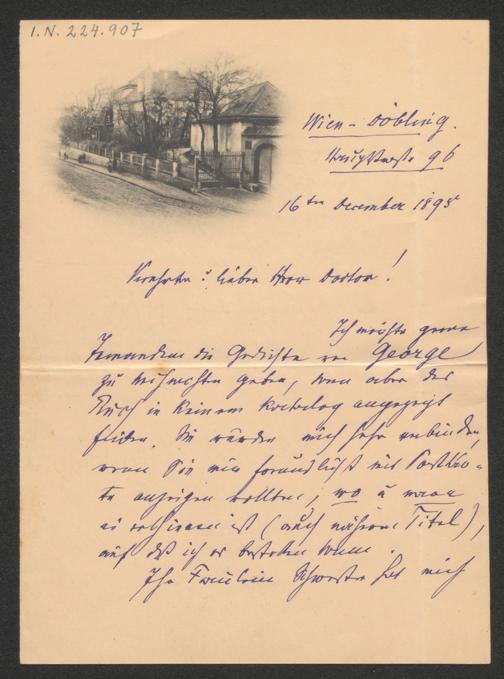 I.N. 224.907
Wien-Döbling.
Hauptstraße 96
16ten December 1895
Verehrter u. lieber Herr Doctor!
Ich möchte gerne
Jemandem die Gedichte von George
zu Weihnachten geben, kann aber das
Buch in keinem Katalog angezeigt
finden. Sie würden mich sehr verbinden,
wenn Sie mir freundlichst mit Postkar-
te anzeigen wollten, wo u wann
es erschienen ist (auch näheren Titel),
auf daß ich es bestellen kann.
Ihr Fräulein Schwester hat mich